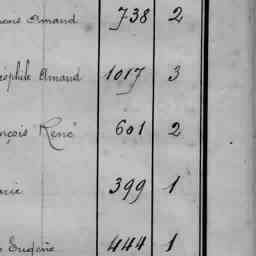 Amand 738 2
éophile Amand 1017 3
nçois René 601 2
rie 399 1
Eugène 444 1